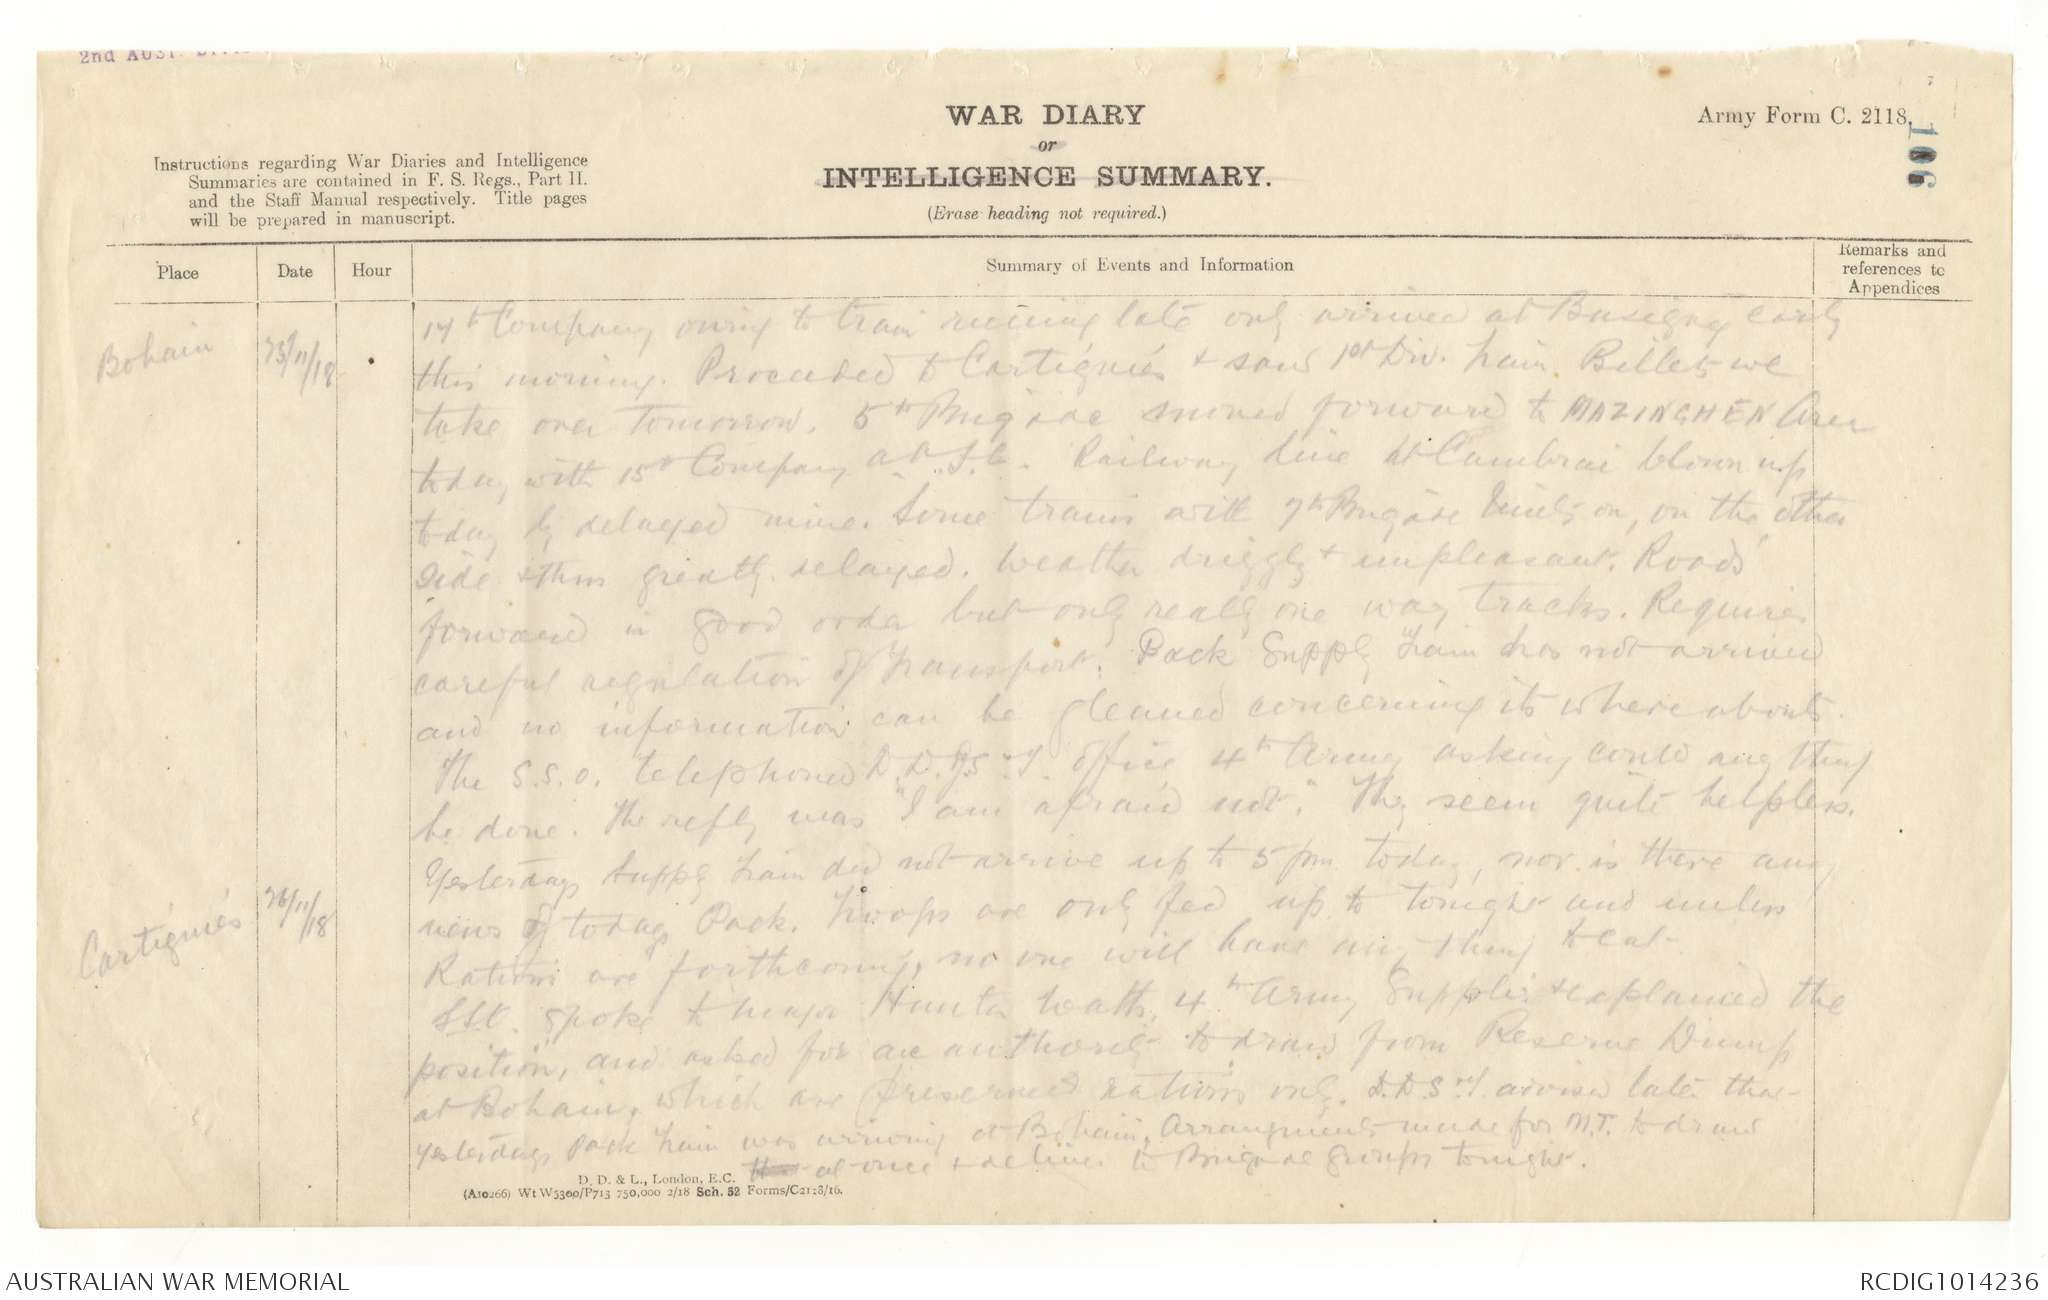 2nd AUST.
WAR DIARY
or
INTELLIGENCE SUMMARY.
(Erase heading not required.)
Army Form C. 2118.
106
Instructions regarding War Diaries and Intelligence
Summaries are contained in F. S. Regs., Part II.
and the Staff Manual respectively. Title pages
will be prepared in manuscript.
Place
Date
Hour
Summary of Events and Information
Remarks and
references to
Appendices
Bohain
25/11/18
17th Company owing to train running late only arrived at Busigny early
this morning. Proceeded to Cartignies & saw 1st Div. Train Billets we
take over tomorrow. 5th Brigade moved forward to MAZINGHEN Area
today with 15th Company A.A.S.C. Railway line at Cambrai blown up
today by delayed mine. Some trains with 7th Brigade Units on, on the other
side & thus greatly delayed. Weather driggly & unpleasant. Roads
forward in good order but only really one way tracks. Requires
careful regulation of Transport. Pack Supply Train has not arrived
and no information can be gleaned concerning its whereabouts.
The S.S.O. telephoned D.D.of S & T. office 4th Army asking could any thing
be done. The reply was "I am afraid not". They seem quite helpless.
Cartignies
26/11/18
Yesterdays Supply Train did not arrive up to 5 pm today, nor is there any
news of todays Pack. Troops are only fed up to tonight and unless
Rations are forthcoming, no one will have any thing to eat.
S.S.O. spoke to Major Hunter Watts, 4th Army Supplies & explained the
position, and asked for an authority to draw from Reserve Dump
at Bohain, which are preserved rations only. D.D.S & T. advised late that
yesterdays Pack Train was arriving at Bohain. Arrangements made for M.T. to draw
at once & deliver to Brigade Groups tonight.
D. D. & L., London, E.C.
(A10266) Wt W5300/P713 750,000 2/18 Sch. 52 Forms/C2118/16.
AUSTRALIAN WAR MEMORIAL
RCDIG1014236